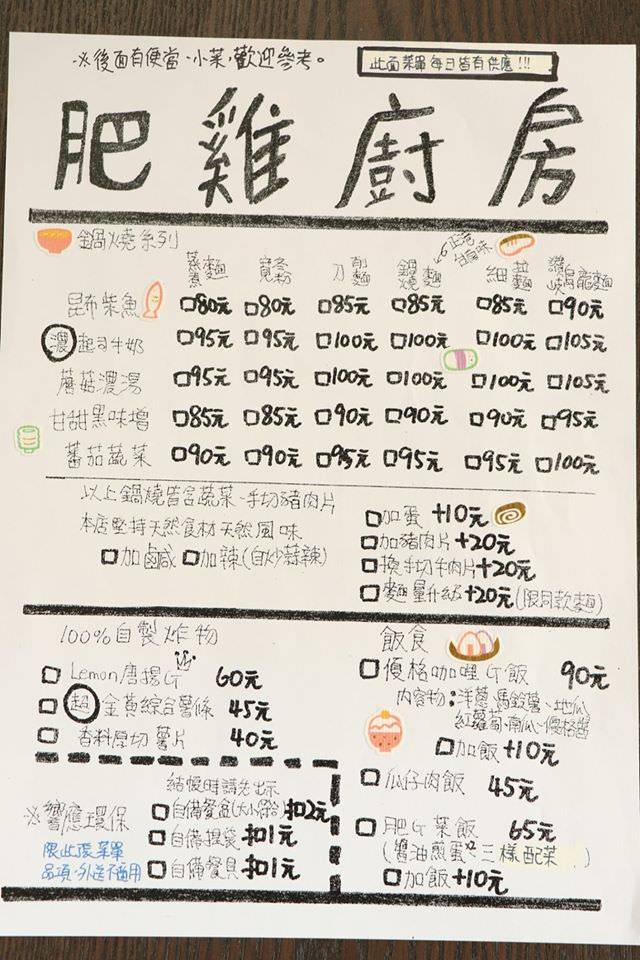 ※後面有便當、小菜,歡迎參考。
此面菜單每日皆有供應!!!
肥雞廚房
鍋燒系列
蒸煮麵 寬冬粉 刀削麵 鍋燒麵 正港台南味 細拉麵 讚岐烏龍麵
昆布柴魚 □80元 □80元 □85元 □85元 □85元 □90元
濃起司牛奶 □95元 □95元 □100元 □100元 □100元 □105元
蘑菇濃湯 □95元 □95元 □100元 □100元 □100元 □105元
甘甜黑味增 □85元 □85元 □90元 □90元 □90元 □95元
蕃茄蔬菜 □90元 □90元 □95元 □95元 □95元 □100元
以上鍋燒皆含蔬菜、手切豬肉片
本店堅持天然食材天然風味
□加鹹 □加辣(自炒蒜辣)
□加蛋+10元
□加豬肉片+20元
□換手切牛肉片+20元
□麵量升級+20元(限同款麵)
100%自製炸物
□ Lemon唐揚G 60元
□ 超金黃綜合薯條 45元
□ 香料厚切薯片 40元
飯食
□優格咖哩G飯 90元
內容物:洋蔥、馬鈴薯、地瓜
紅蘿蔔、南瓜、優格醬
□加飯+10元
□瓜仔肉飯 45元
□肥G菜飯 65元
(醬油煎蛋、三樣配菜)
□加飯+10元
※響應環保
限此張菜單
品項,外送不適用
結帳時請先出示
□自備餐盒(大小)扣2元
□自備提袋 扣1元
□自備餐具 扣1元